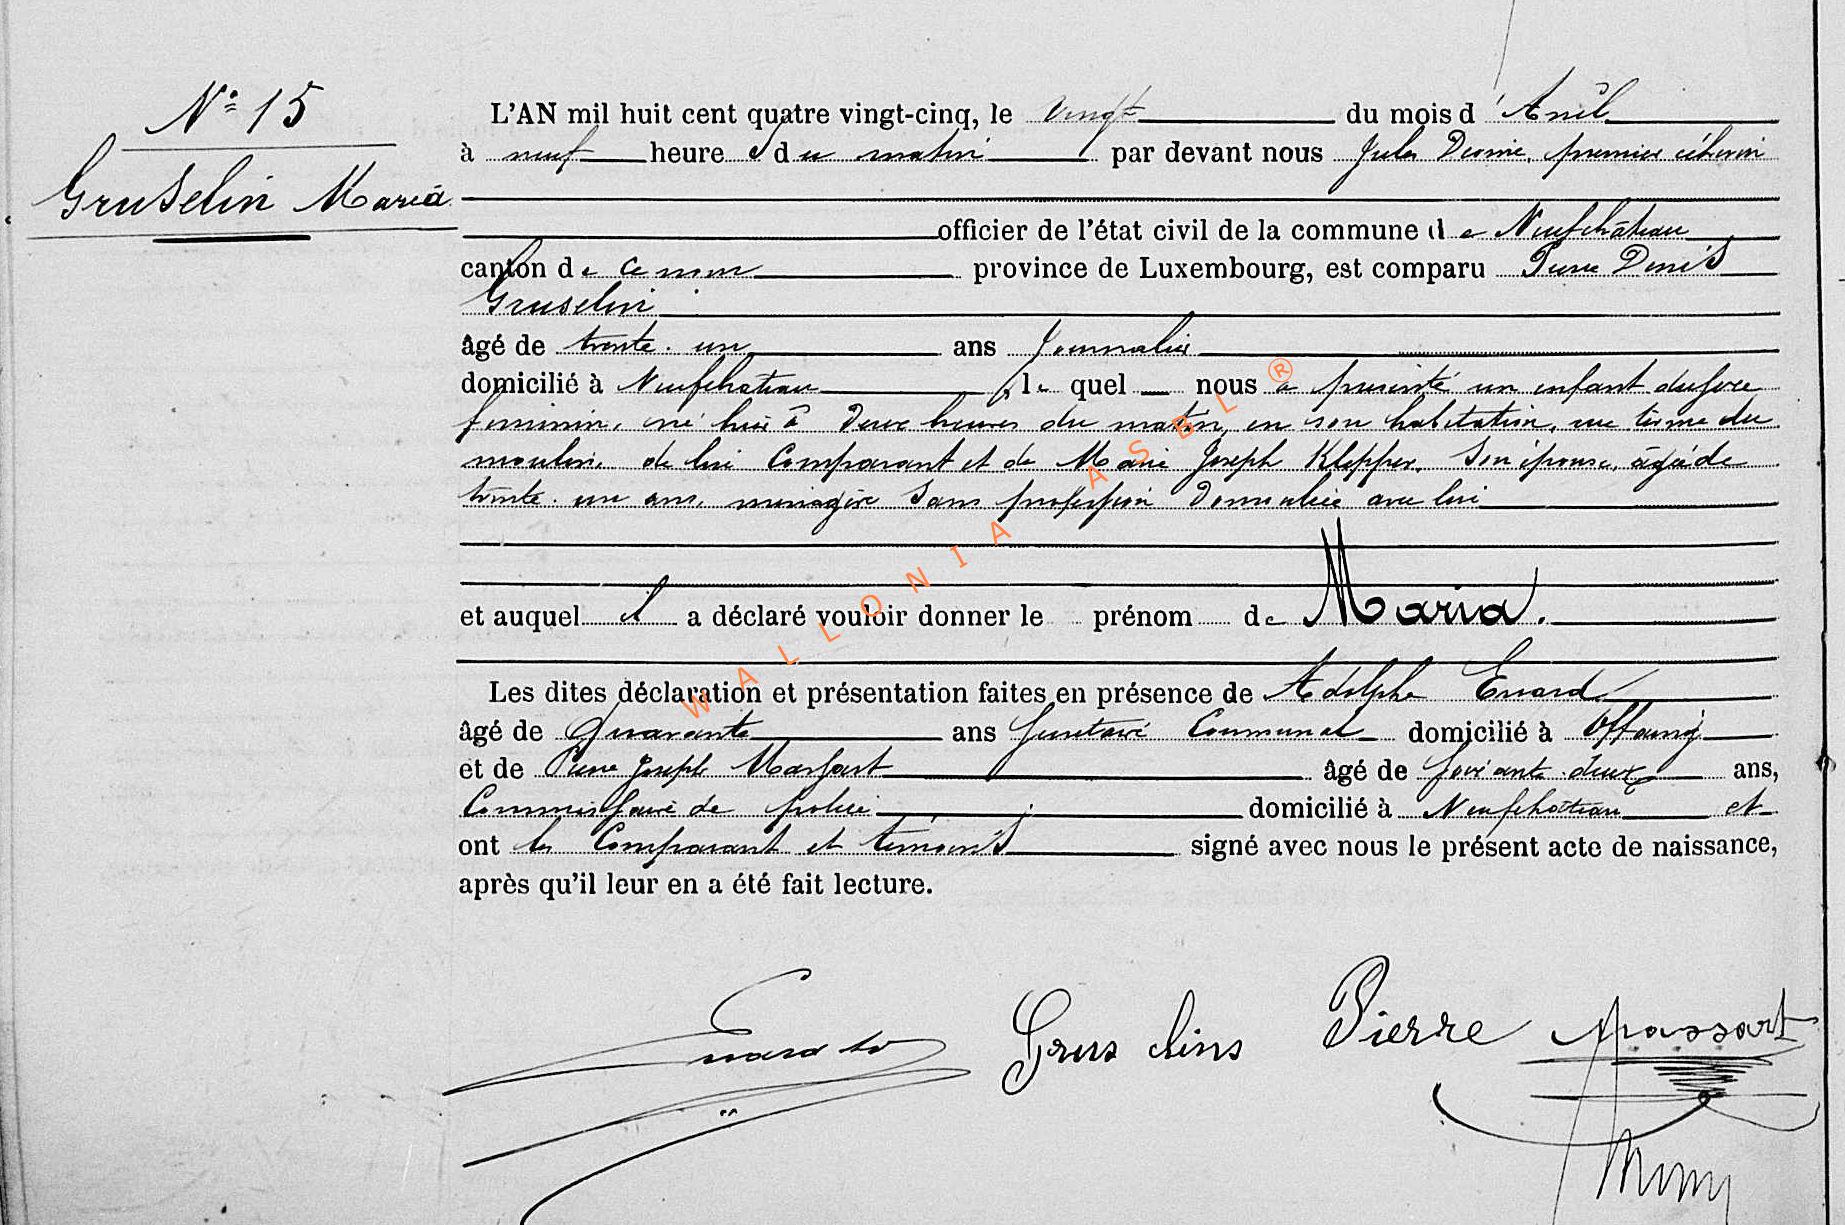 N° 15
Gruselin Maria
L'AN mil huit cent quatre vingt-cinq, le vingt du mois d'Avril
à neuf heures du matin par devant nous Jules premier échevin
officier de l'état civil de la commune de Neufchâteau
canton de ce nom province de Luxembourg, est comparu Pierre Denis
Gruselin
âgé de trente-un ans Journalier
domicilié à Neufchâteau, lequel nous a présenté un enfant du sexe
féminin, né hier à deux heures du matin, en son habitation, du
moulin, de lui Comparant et de Marie Joseph Klepper, son épouse, âgée de
trente-un ans, ménagère sans profession domiciliée avec lui
et auquel il a déclaré vouloir donner le prénom de Maria.
Les dites déclaration et présentation faites en présence de Adolphe Evrard
âgé de Quarante ans Communal domicilié à Offaing
et de Pierre Joseph Massart âgé de soixante-deux ans,
Commissaire de police domicilié à Neufchâteau et
ont les Comparant et témoins signé avec nous le présent acte de naissance,
après qu'il leur en a été fait lecture.
WALLONIA ASBL ®
Gruselins Pierre Massart